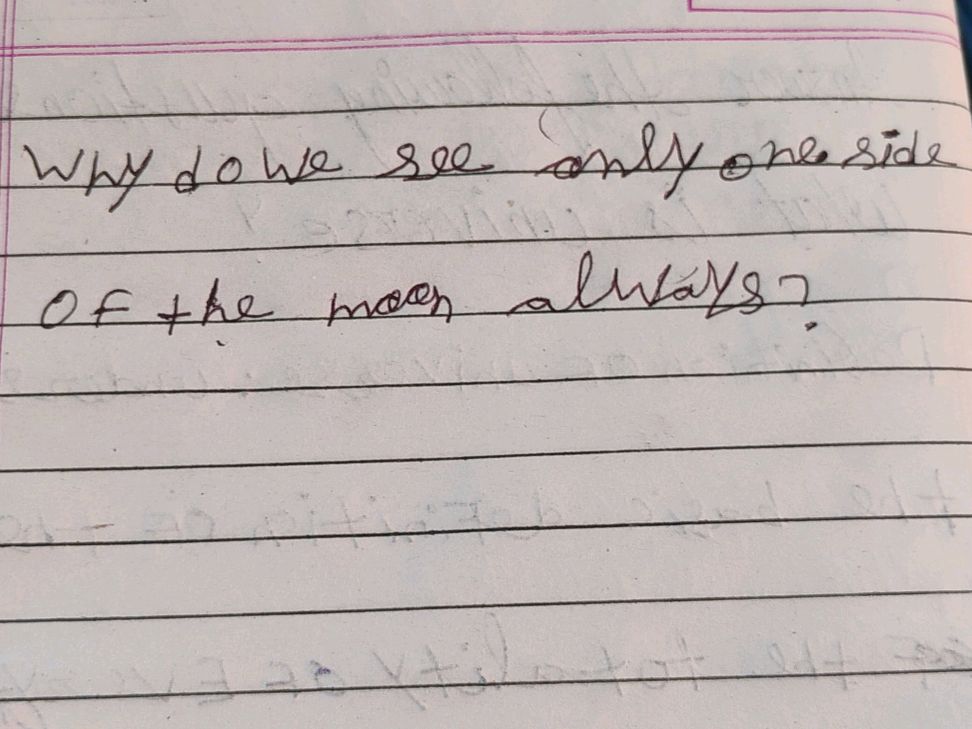 Why do we see only one side
of the moon always?